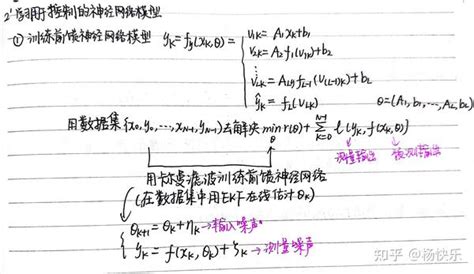 2° 可用于控制的神经网络模型
① 训练前馈神经网络模型 yₖ = f_θ(xₖ, θ) =
v₁ₖ = A₁xₖ + b₁
v₂ₖ = A₂f₁(v₁ₖ) + b₂
v_Lₖ = A_L f_{L-1}(v_{(L-1)k}) + b_L
ŷₖ = f_L(v_Lₖ) θ = (A₁, b₁, ..., A_L, b_L)
用数据集{x₀, y₀, ..., x_{N-1}, y_{N-1}}去解决 min_θ r(θ) + Σ_{k=0}^{N-1} ℓ(yₖ, f(xₖ, θ))
测量输出 预测输出
用卡尔曼滤波训练前馈神经网络
(在数据集中用EKF在线估计θₖ)
θₖ₊₁ = θₖ + ηₖ → 输入噪声
yₖ = f(xₖ, θₖ) + ζₖ → 测量噪声
知乎 @杨快乐